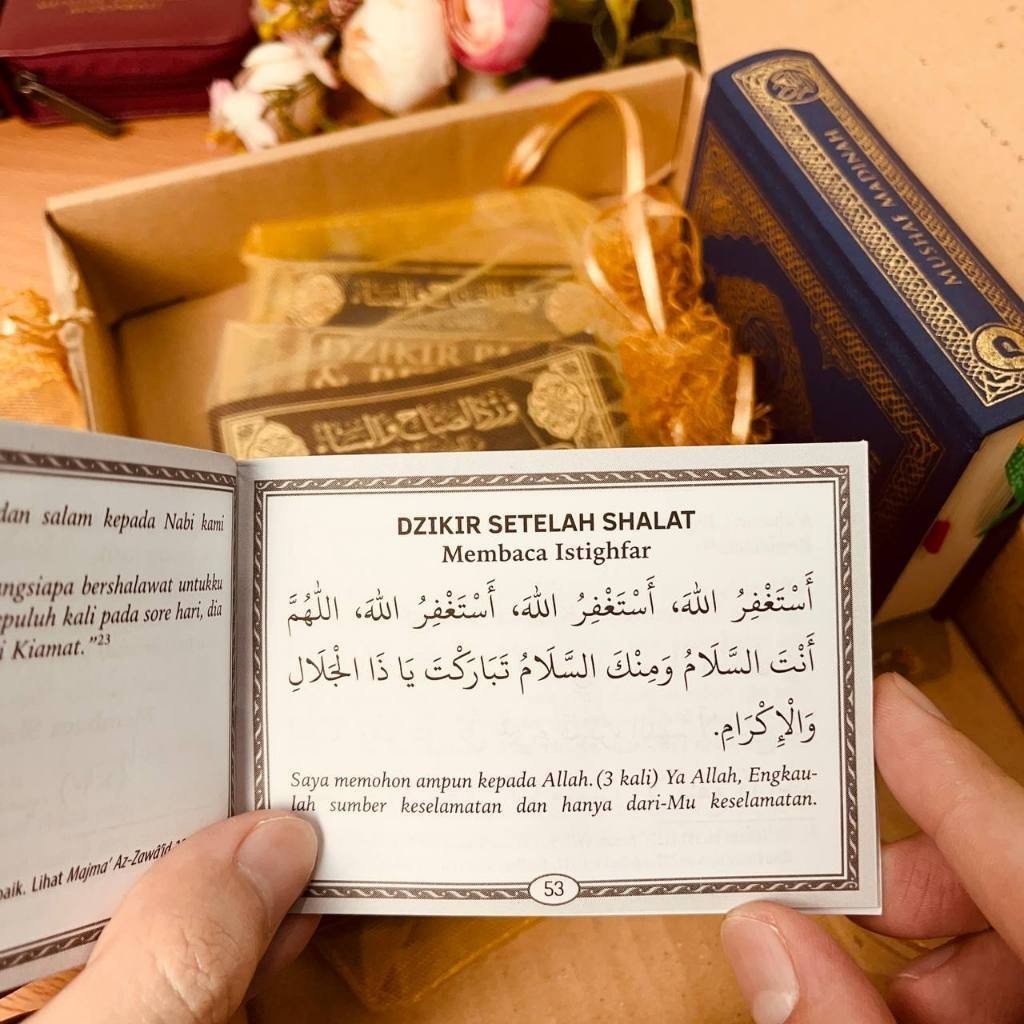 MUSHAF MADINAH
DZIKIR
وِرْدُ الصَّبَاحِ وَالْمَسَاءِ
dan salam kepada Nabi kami
bershalawat untukku
kali pada sore hari, dia
Kiamat."23
Lihat Majma' Az-Zawâ'id
DZIKIR SETELAH SHALAT
Membaca Istighfar
أَسْتَغْفِرُ اللهَ، أَسْتَغْفِرُ اللهَ، أَسْتَغْفِرُ اللهَ، اللّٰهُمَّ
أَنْتَ السَّلَامُ وَمِنْكَ السَّلَامُ تَبَارَكْتَ يَا ذَا الْجَلَالِ
وَالْإِكْرَامِ.
Saya memohon ampun kepada Allah. (3 kali) Ya Allah, Engkau-
lah sumber keselamatan dan hanya dari-Mu keselamatan.
53